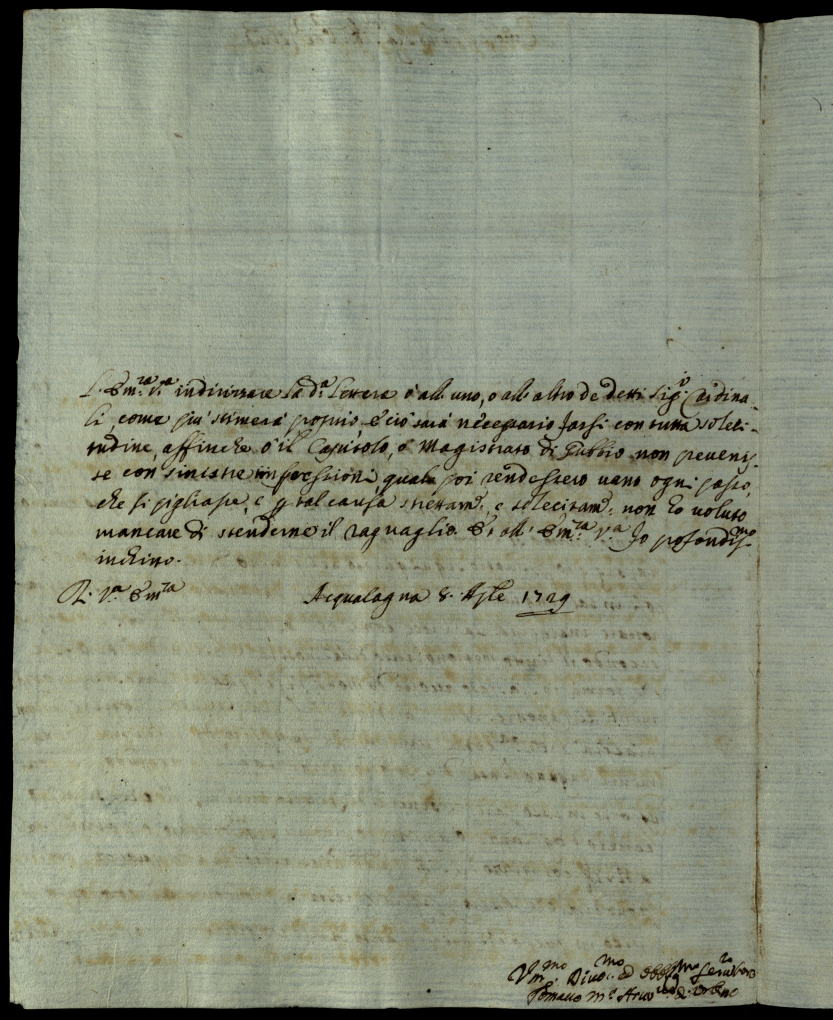 L. Em.za V.ra indirizzare la d.a lettera ò all'uno, o all'altro de detti Sig.ri Cardina-
li, come più stimerà proprio, e ciò sarà necessario farsi con tutta soleci-
tudine, affinche ò il Capitolo, ò Magistrato di Gubbio non preveniſ-
se con sinistre impressioni, quali poi rendessero vano ogni passo,
che si pigliasse, e p tal causa, e solecitam.e non hò voluto
mancare di stenderne il raguaglio. Et all' Em.za V.ra Io profondiſ.mo
inchino.
D. V.ra Em.za Acqualagna 8. 1729
Um.mo Divot.mo ed Obblig.mo Servitore
Tomasso M.a Arciv.o di Urbino